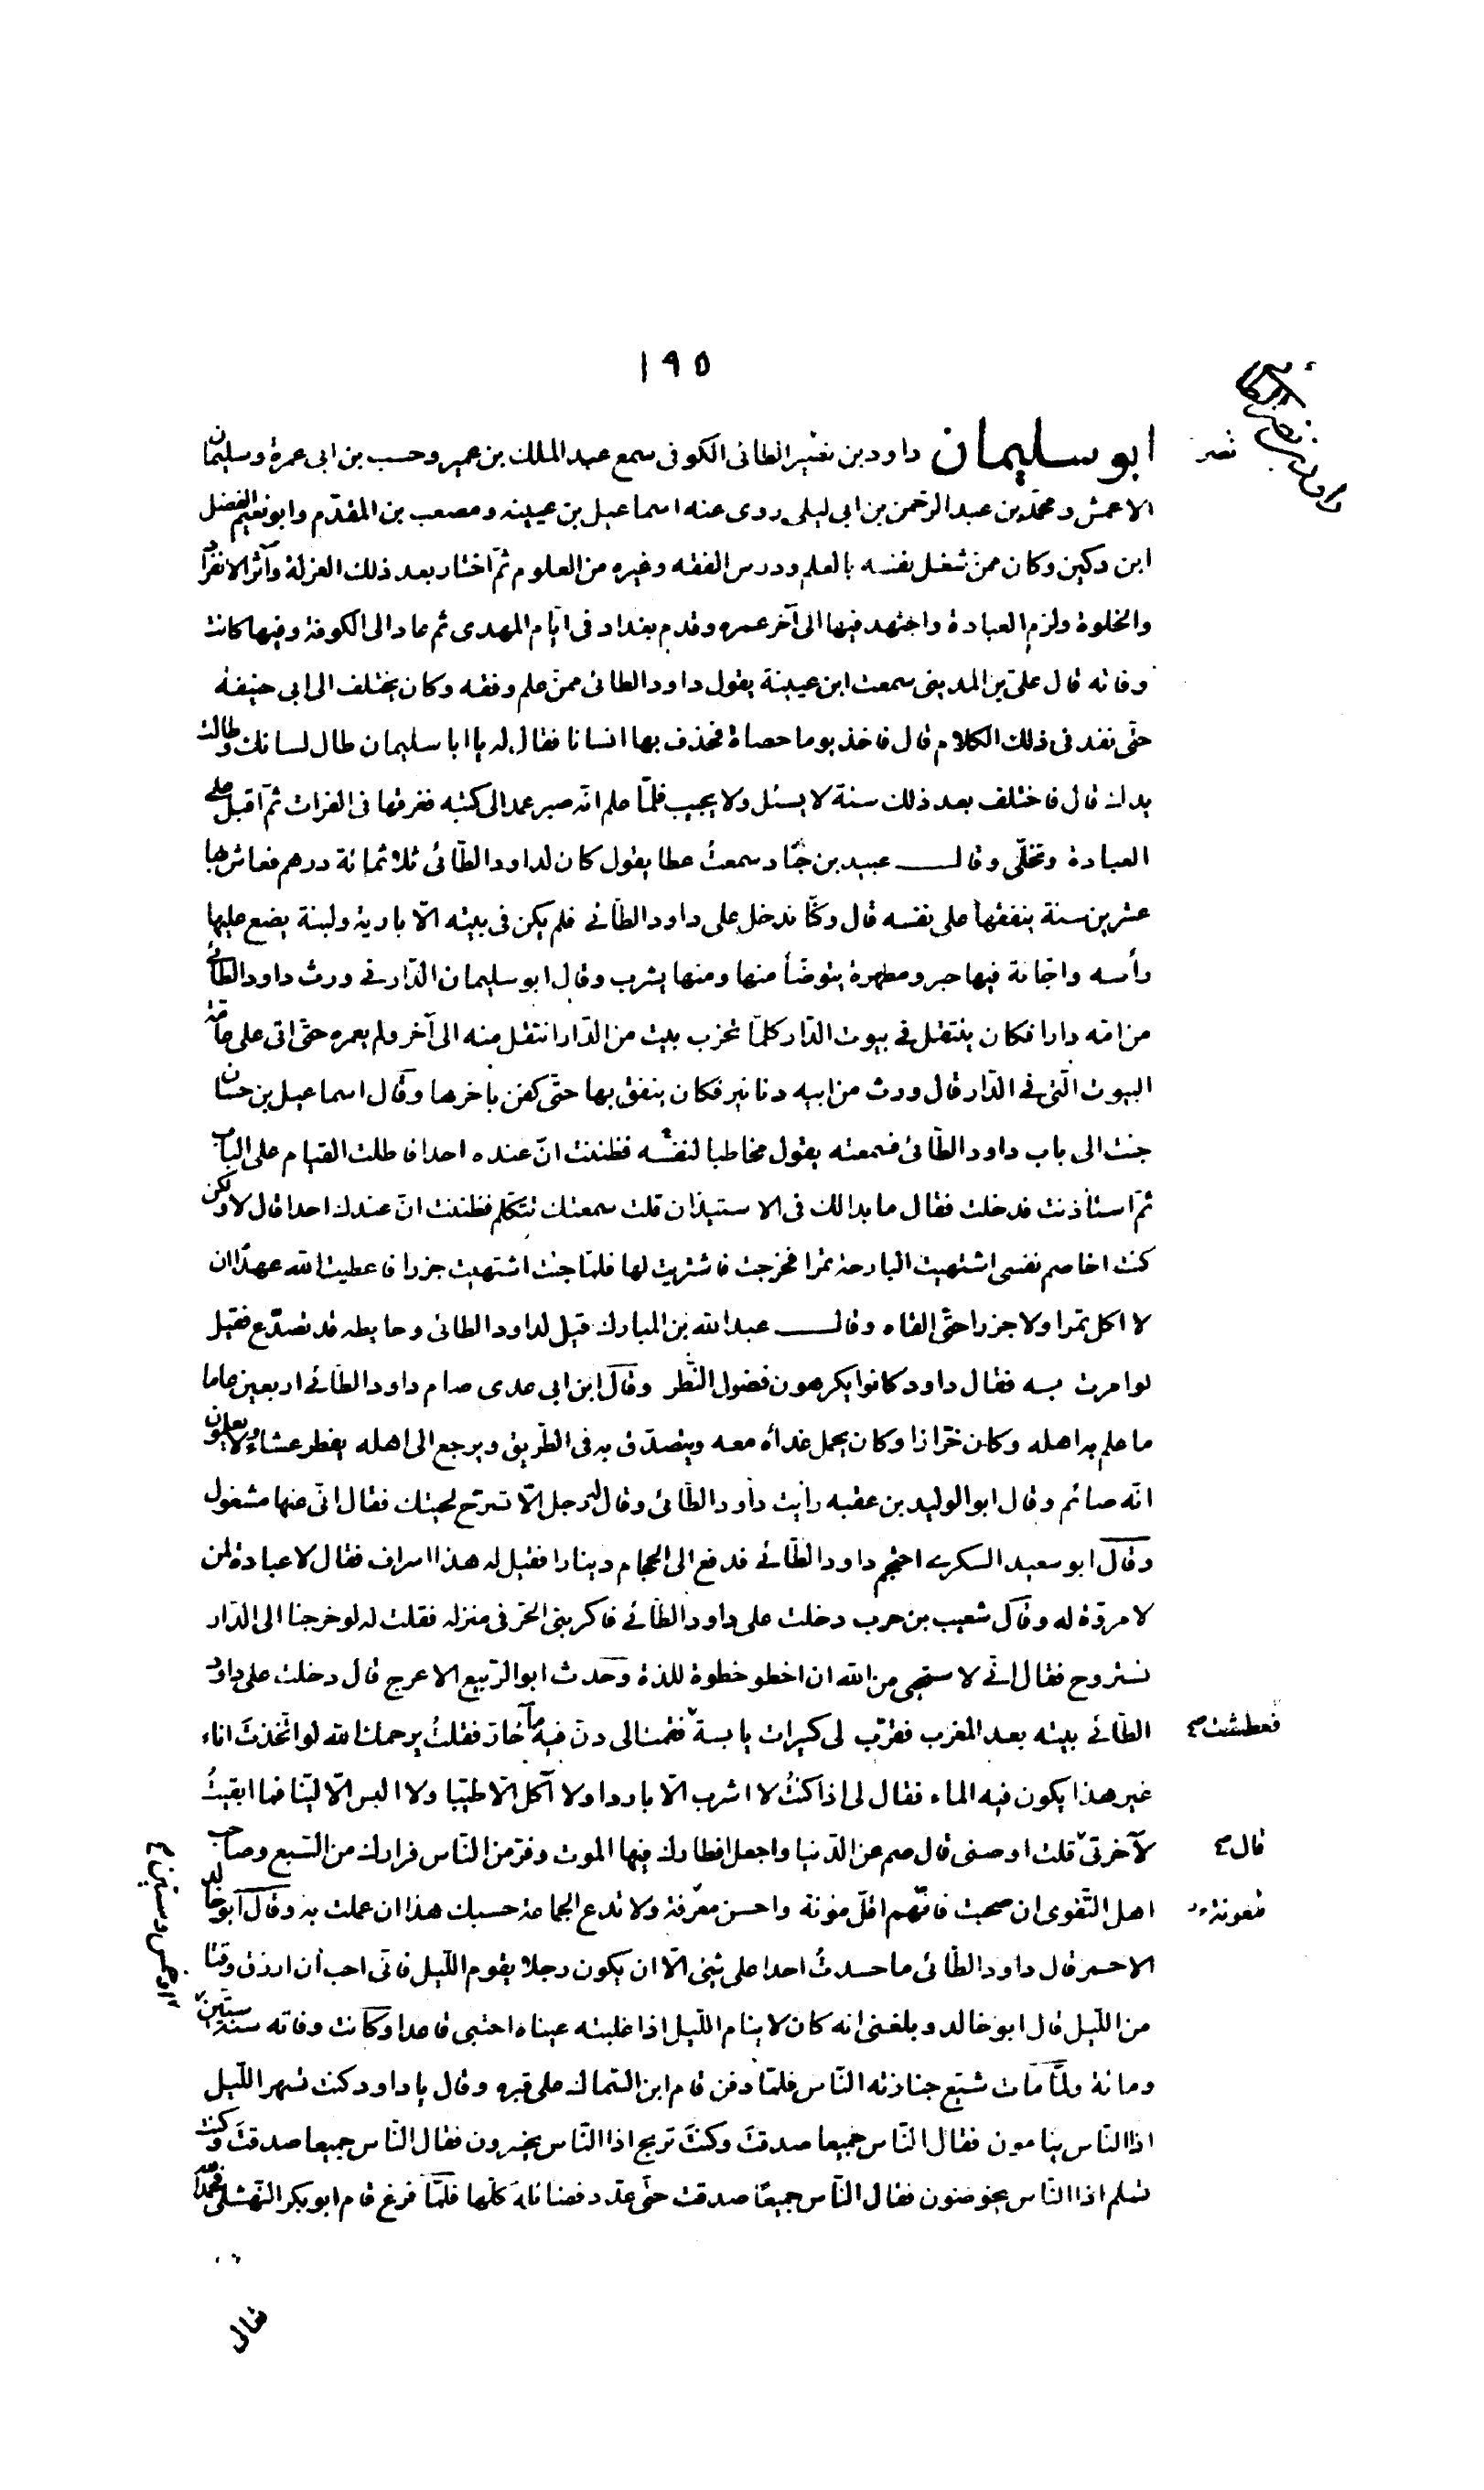 ١٩٥
داود بن نصر الطائي
ابو سليمان داود بن نصير الطائى الكوفى سمع عبد الملك بن عمير وحسب بن ابى عمرة وسليمان
نصر
الاعمش ومحمد بن عبد الرحمن بن ابى ليلى روى عنه اسماعيل بن عيينه ومصعب بن المقدّم وابو نعيم الفضل
ابن دكين وكان ممن شغل نفسه بالعلم ودرس الفقه وغيره من العلوم ثمّ اختار بعد ذلك العزلة وآثر الانفراد
والخلوة ولزم العبادة واجتهد فيها الى آخر عمره وقدم بغداد فى ايّام المهدى ثم عاد الى الكوفة وفيها كانت
وفاته قال علىّ بن المدينى سمعت ابن عيينة يقول داود الطائى ممن علم وفقه وكان يختلف الى ابى حنيفة
حتّى نفد فى ذلك الكلام قال فاخذ يوما حصاة فحذف بها انسانا فقال له يا ابا سليمان طال لسانك وطالت
يدك قال فاختلف بعد ذلك سنة لا يسئل ولا يجيب فلمّا علم انّه صبر عمد الى كتبه فغرقها فى الفرات ثمّ اقبل على
العبادة وتخلّى وقال عبيد بن جنّاد سمعتُ عطا يقول كان لداود الطّائى ثلاثمائة درهم فعاش بها
عشرين سنة ينفقها على نفسه قال وكنّا ندخل على داود الطائى فلم يكن فى بيته الّا بارية ولبنة يضع عليها
رأسه واجّانة فيها خبز ومطهرة يتوضّأ منها ومنها يشرب وقال ابو سليمان الدّارنى ورث داود الطّائى
من امّه دارا فكان ينتقل فى بيوت الدّار كلمّا تخرّب بيت من الدّار انتقل منه الى آخر ولم يعمره حتّى اتى على عامّة
البيوت الّتى فى الدّار قال وورث من ابيه دنانير فكان ينفق بها حتّى كفن باخرها وقال اسماعيل بن حسّان
جئت الى باب داود الطّائى فسمعته يقول مخاطبا لنفسه فظننت انّ عنده احدا فاطلت القيام على الباب
ثمّ استأذنت فدخلت فقال ما بدا لك فى الاستيذان قلت سمعتك تتكلّم فظننت انّ عندك احدا قال لا ولكن
كنت اخاصم نفسى اشتهيت البارحة تمرا فخرجت فاشتريت لها فلمّا جئت اشتهيت جزرا فاعطيت الله عهدًا ان
لا اكل تمرا ولا جزرا حتّى القاه وقال عبد الله بن المبارك قيل لداود الطائى وحايطه قد تصدّع فقيل
لو امرت بسه فقال داود كانوا يكرهون فضول النّظر وقال ابن ابى عدى صام داود الطائى اربعين عاما
ما علم به اهله وكان خرّازا وكان يحمل غداه معه ويتصدّق به فى الطّريق ويرجع الى اهله يفطر عشاء ولا يعلمون
انّه صائم وقال ابو الوليد بن عقبه رأيت داود الطّائى وقال له رجل الّا تسرّح لحيتك فقال انّى عنها مشغول
وقال ابو سعيد السكرى احتجم داود الطّائى فدفع الى الحجام دينارا فقيل له هذا اسراف فقال لا عبادة لمن
لا مروّة له وقال شعيب بن حرب دخلت على داود الطّائى فاكربنى الحرّ فى منزله فقلت له لو خرجنا الى الدّار
نستروح فقال انّى لا ستحيى من الله ان اخطو خطوة للذة وحدث ابو الرّبيع الاعرج قال دخلت على داود
الطّائى بيته بعد المغرب فقرّب لى كسيرات يابسة فقمت الى دنّ فيه ماء حارّ فقلتُ يرحمك الله لو اتّخذت اناء
فعطشت صح
غير هذا يكون فيه الماء فقال لى اذا كنتُ لا اشرب الّا باردا ولا آكل الّا طيّبا ولا البس الّا ليّنا فما ابقيتُ
لآخرتى قلت اوصنى قال صم عن الدّنيا واجعل افطارك فيها الموت وفرّ من النّاس فرارك من السّبع وصاحب
قال صح
اهل التّقوى ان صحبت فانّهم اقلّ مؤنة واحسن معرفة ولا تدع الجماعة حسبك هذا ان عملت به وقال ابو خالد
معونة
الاحمر قال داود الطّائى ما حسدتُ احدا على شيئ الّا ان يكون رجلا يقوم اللّيل فانّى احب ان ارزق وقتا
من اللّيل قال ابو خالد وبلغنى انه كان لا ينام اللّيل اذا غلبته عيناه احتبى قاعدا وكانت وفاته سنة ستّين
او خمس وستين
ومائة ولمّا مات شيّع جنازته النّاس فلمّا دفن قام ابن السّماك على قبره وقال يا داود كنت تسهر اللّيل
اذا النّاس ينامون فقال النّاس جميعا صدقتَ وكنتَ تربح اذا النّاس يخسرون فقال النّاس جميعا صدقتَ وكنت
تسلم اذا النّاس يخوضون فقال النّاس جميعًا صدقت حتى عدّد فضائله كلّها فلمّا فرغ قام ابو بكر النّهشلى فحمد الله
فقال